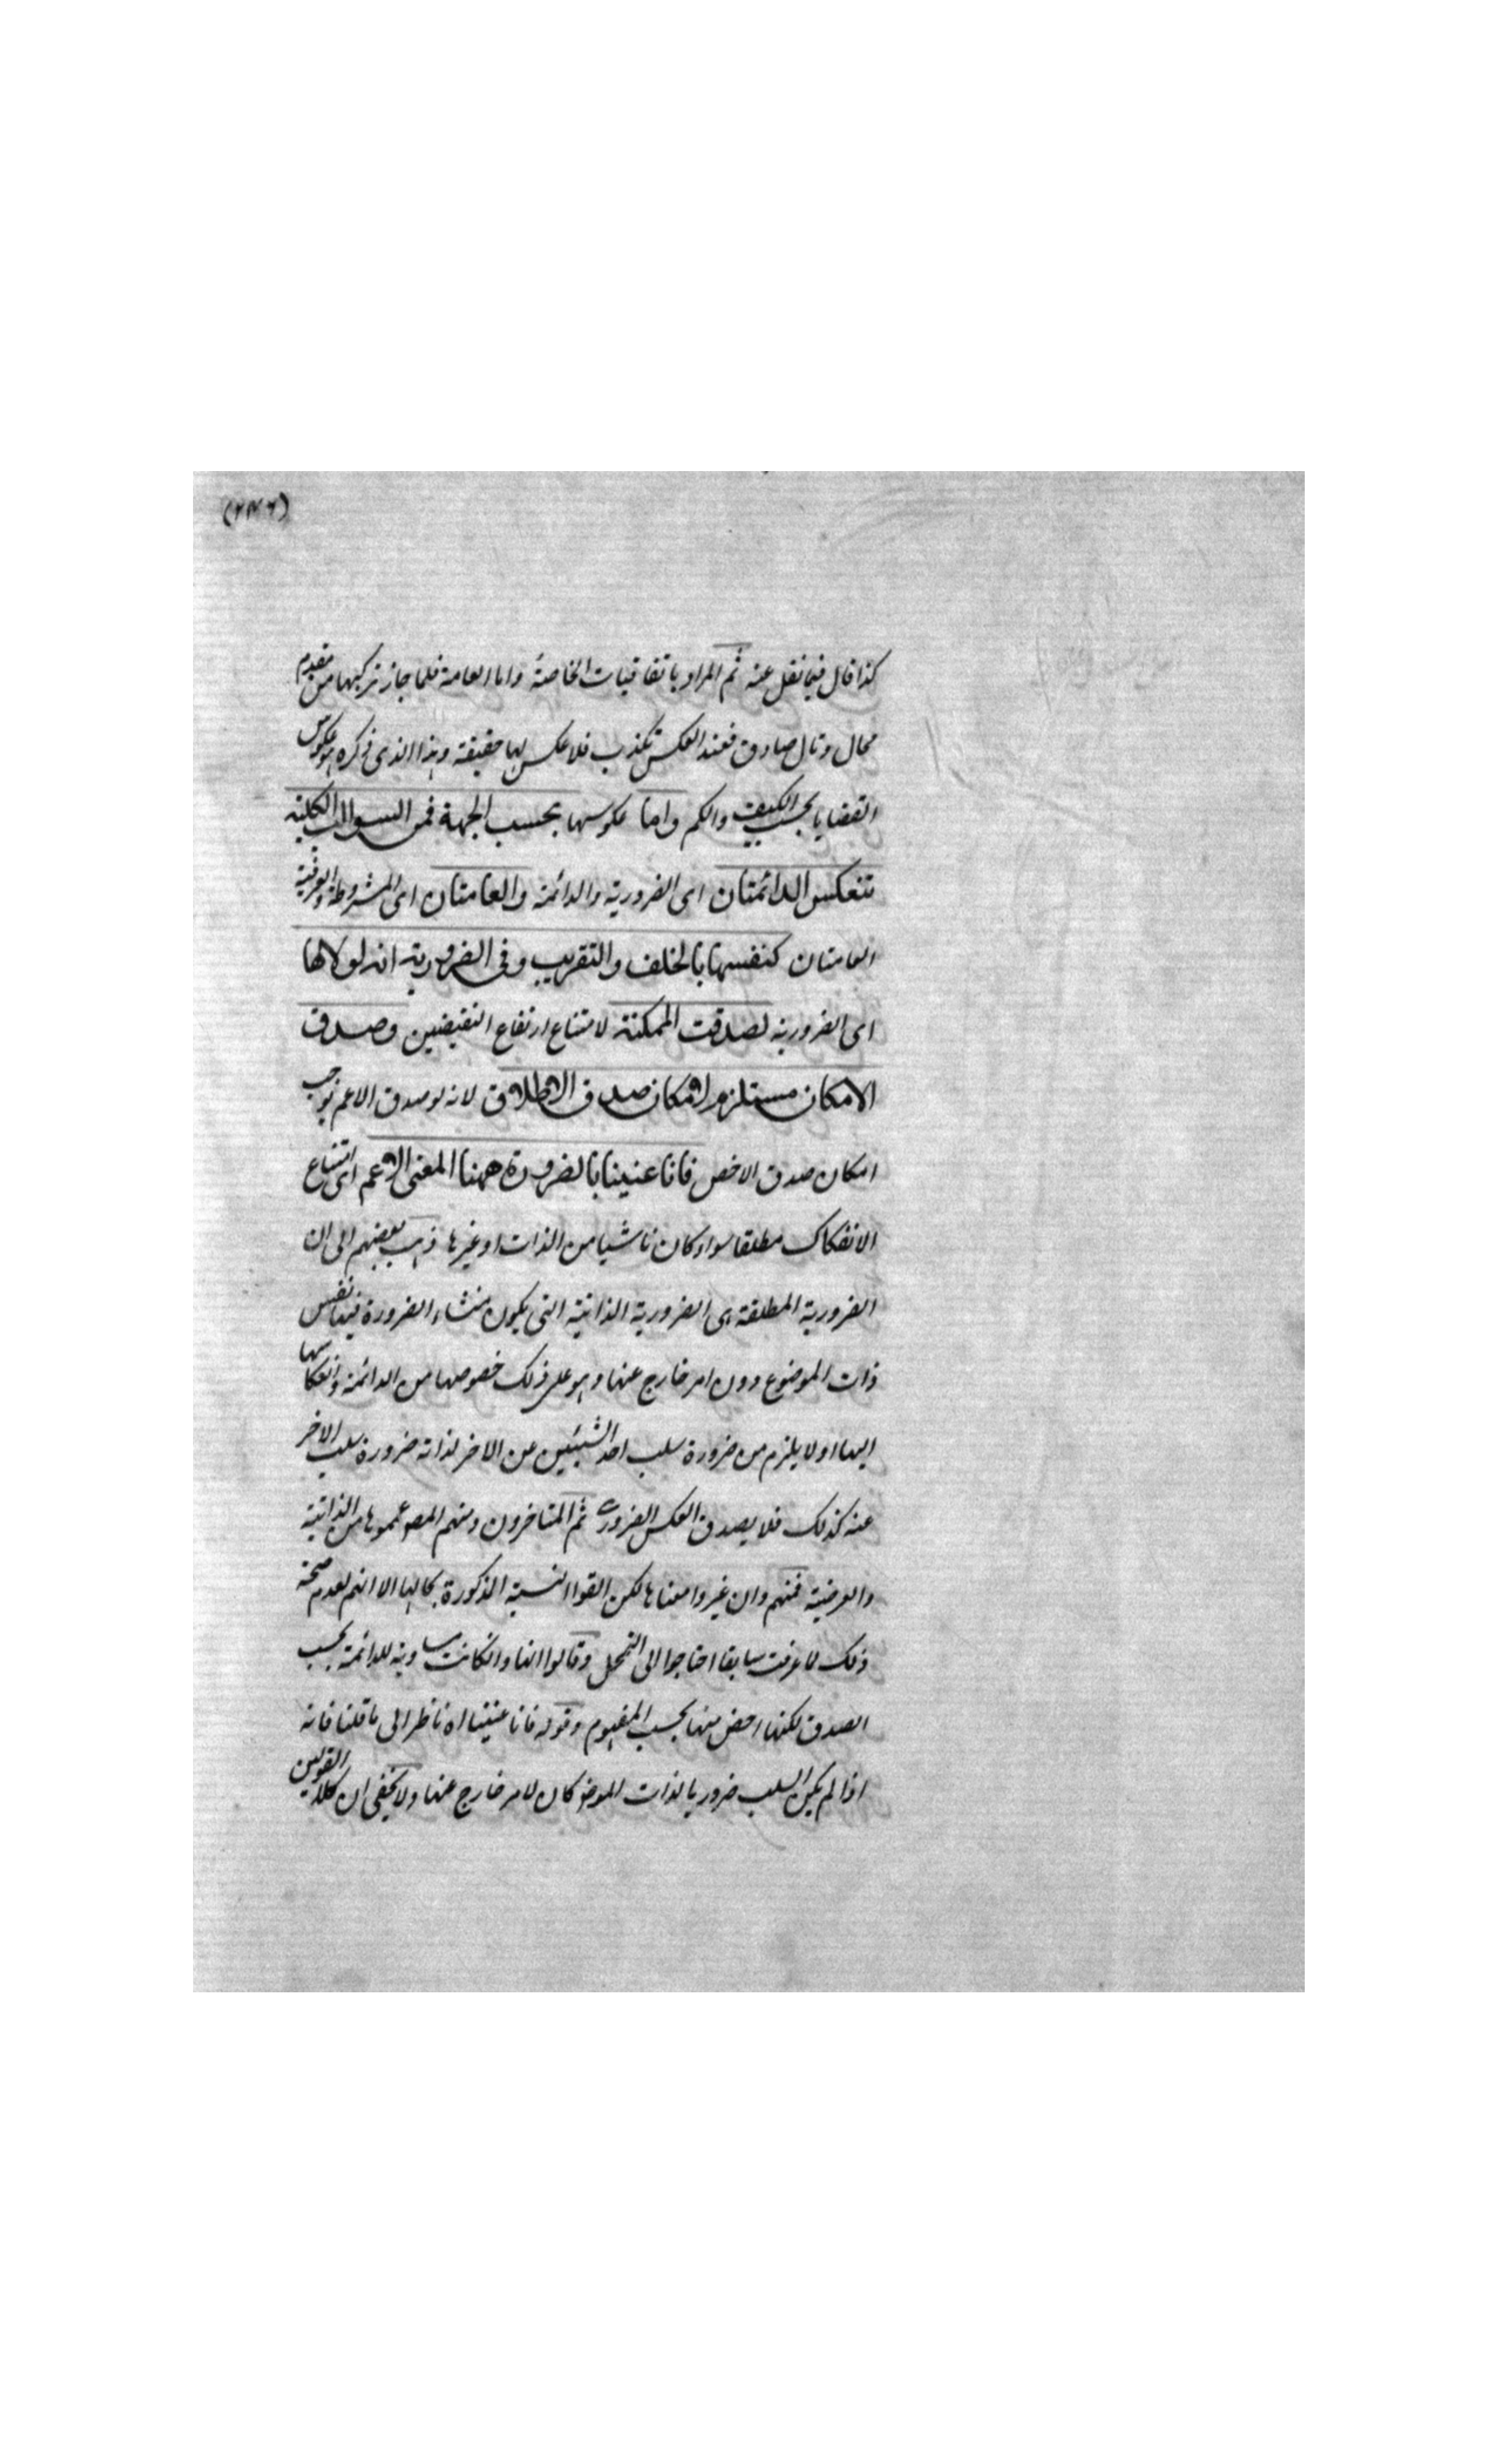 (٢٤٦)
كذا قال فيما نقل عنه ثم المراد باتفاقيات الخاصة واما العامة فلما جاز تركبها من مقدم
محال وتال صادق فعند العكس تكذب فلا عكس لها حقيقة وهذا الذى ذكره هو عكوس
القضايا بحسب الكيف والكم واما عكوسها بحسب الجهة فمن السوالب الكلية
تنعكس الدائمتان اى الضرورية والدائمة والعامتان اى المشروطة والعرفية
العامتان كنفسها بالخلف والتقريب وفى الضرورية انه لولاها
اى الضرورية لصدقت الممكنة لامتناع ارتفاع النقيضين وصدق
الامكان مستلزم لامكان صدق الاطلاق لانه لو صدق الاعم توجب
امكان صدق الاخص فانا عنينا بالضرورة ههنا المعنى الاعم اى امتناع
الانفكاك مطلقا سواء كان ناشيا من الذات او غيرها ذهب بعضهم الى ان
الضرورية المطلقة هى الضرورية الذاتية التى يكون منشاء الضرورة فيها نفس
ذات الموضوع دون امر خارج عنها وهو على ذلك خصوصها من الدائمة وانعكاسها
اليها اولا يلزم من ضرورة سلب احد الشيئين عن الاخر لذاته ضرورة سلب الاخر
عنه كذلك فلا يصدق العكس الضرورى ثم المتاخرون ومنهم المص عمموها من الذاتية
والعرضية فمنهم وان غيروا معناها لكن القوا النسبة المذكورة بحالها الا انهم لعدم صحة
ذلك لما عرفت سابقا احتاجوا الى التمحل وقالوا انها وانكانت مساوية للدائمة بحسب
الصدق لكنها اخص منها بحسب المفهوم وقوله فانا عنينا اه ناظر الى ما قلنا فانه
اذا لم يكن السلب ضروريا لذات الموضو كان لامر خارج عنها ولا يخفى ان كلا القولين